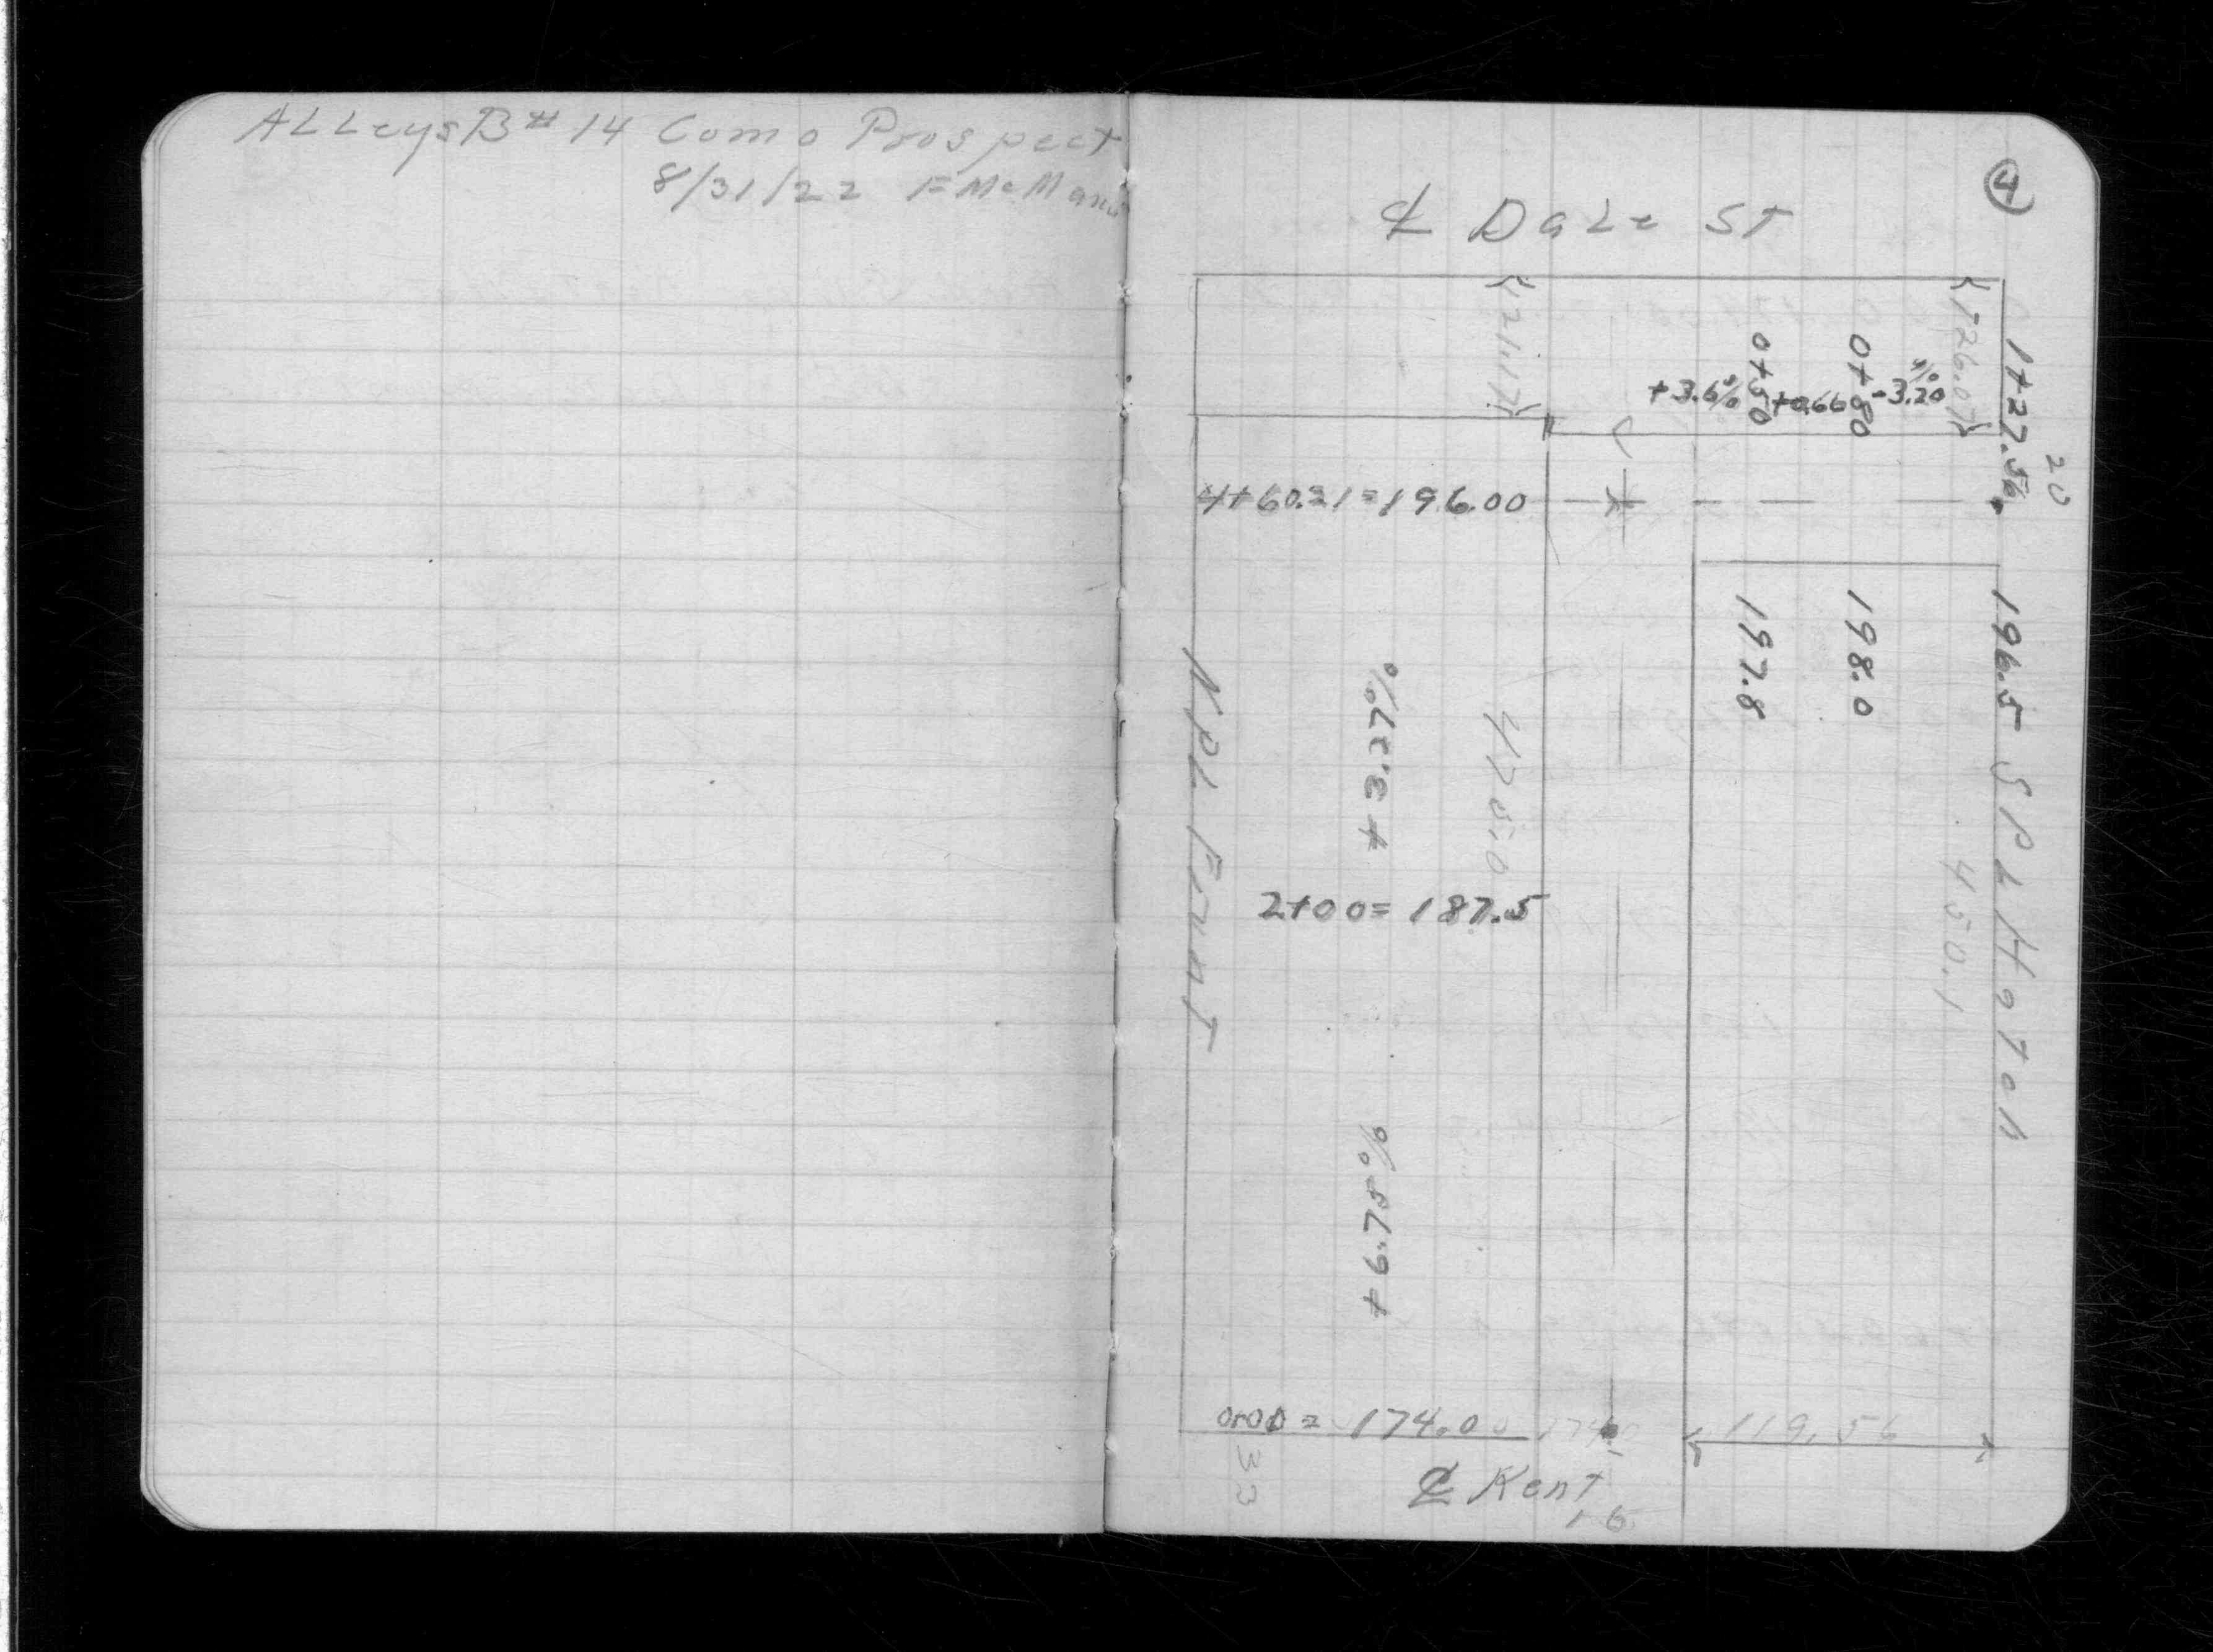 ALLeys B# 14 Como Prospect
8/31/22 F McMann
4
℄ Dale ST
121.17
126.07
1+27.56
20
0+50
0+80
+3.6%
+0.66
-3.20%
4+60.21=196.00
197.8
198.0
196.5 S PL Hatch
+3.27%
470.0
450.1
N PL Front
2+00= 187.5
+6.75%
0+00 = 174.00
119.56
33
℄ Kent
16